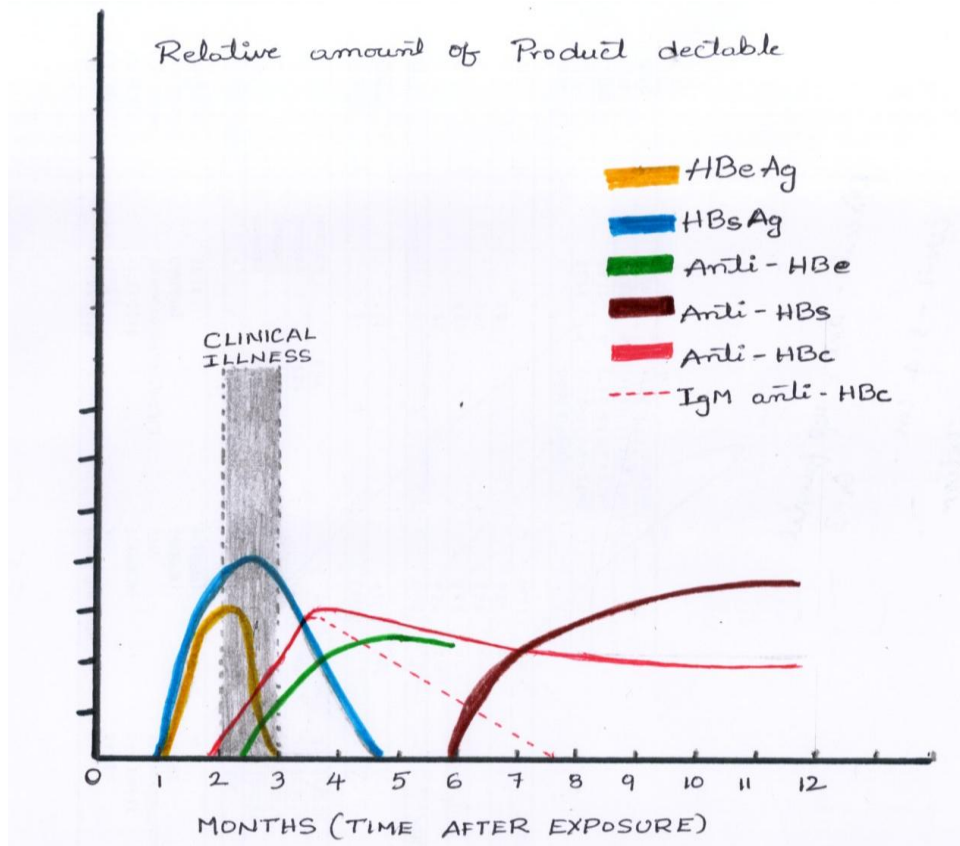 Relative amount of Product dectable
HBeAg
HBsAg
Anti-HBe
Anti-HBs
Anti-HBc
IgM anti-HBc
CLINICAL
ILLNESS
0 1 2 3 4 5 6 7 8 9 10 11 12
MONTHS (TIME AFTER EXPOSURE)